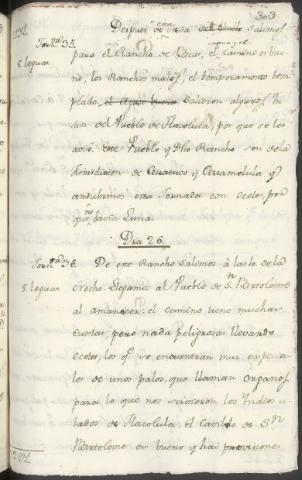 303
Despues de cena salimos
Jorn.da 35.
5. leguas
para el Rancho de el camino es bue
no, los Ranchos malos, el temperamento tem
plado, el agua buena salieron algunos In
dios del Pueblo de Tlacolula, por que se les
avisó. este Pueblo y dho Rancho son de la
Jurisdicion de y
andubimos esta Jornada con ocotes, por
que no havia Luna.
Dia 26.
Jorn.da 36.
5. leguas
De este Rancho salimos á las de la
noche llegamos al Pueblo de S.n Bartolome
al amanecer: el camino tiene muchas
cuestas, pero nada peligrosas llevando
ocotes, los q.e se encuentran mui
les de unos palos, que llaman organos,
para lo que nos sirvieron los Indios
de Tlacolula el Cavildo de S.n
Bartolome es bueno y hai provisiones